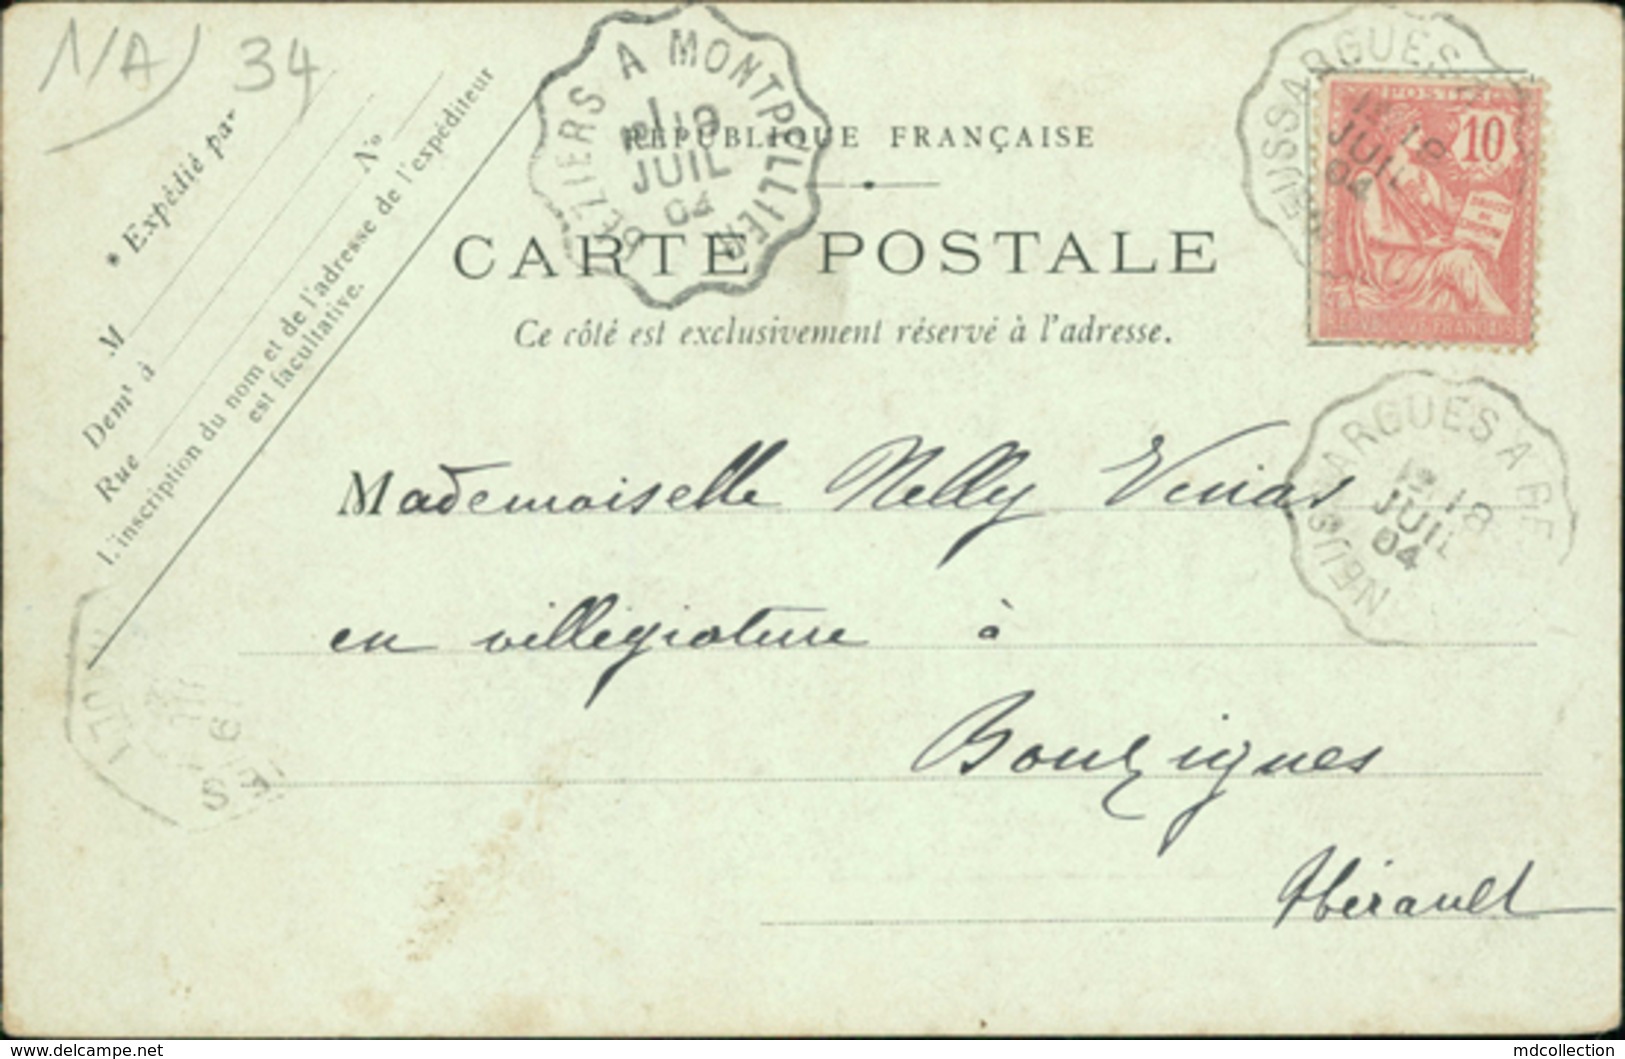 N/A 34
* Expédié par
M
Nº
Demt à
Rue
L'inscription du nom et de l'adresse de l'expéditeur
est facultative.
BEZIERS A MONTPELLIER
19
JUIL
04
RÉPUBLIQUE FRANÇAISE
CARTE POSTALE
Ce côté est exclusivement réservé à l'adresse.
POSTES
10
REPUBLIQUE FRANÇAISE
18
JUIL
04
NEUSSARGUES A BE
18
JUIL
04
Mademoiselle Nelly Vinas
en villégiature à
Bouzigues
Hérault
www.delcampe.net
mdcollection